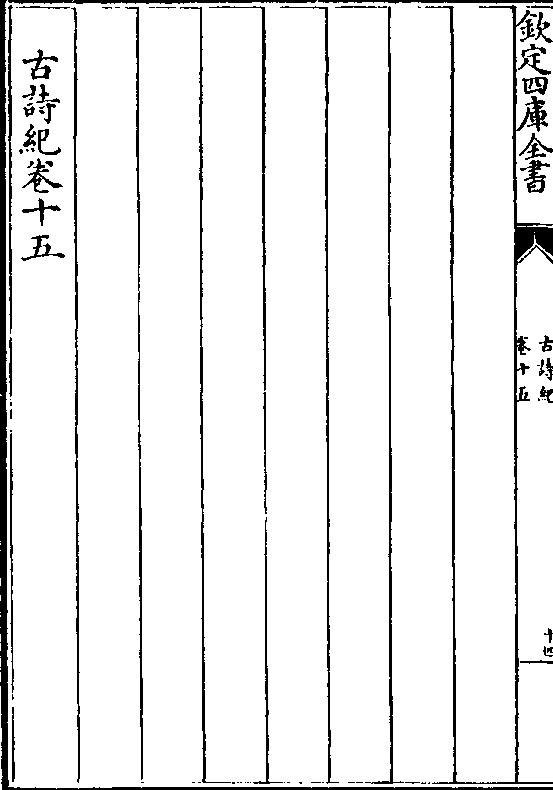 欽定四庫全書
古詩紀
卷十五
十四
古詩紀卷十五